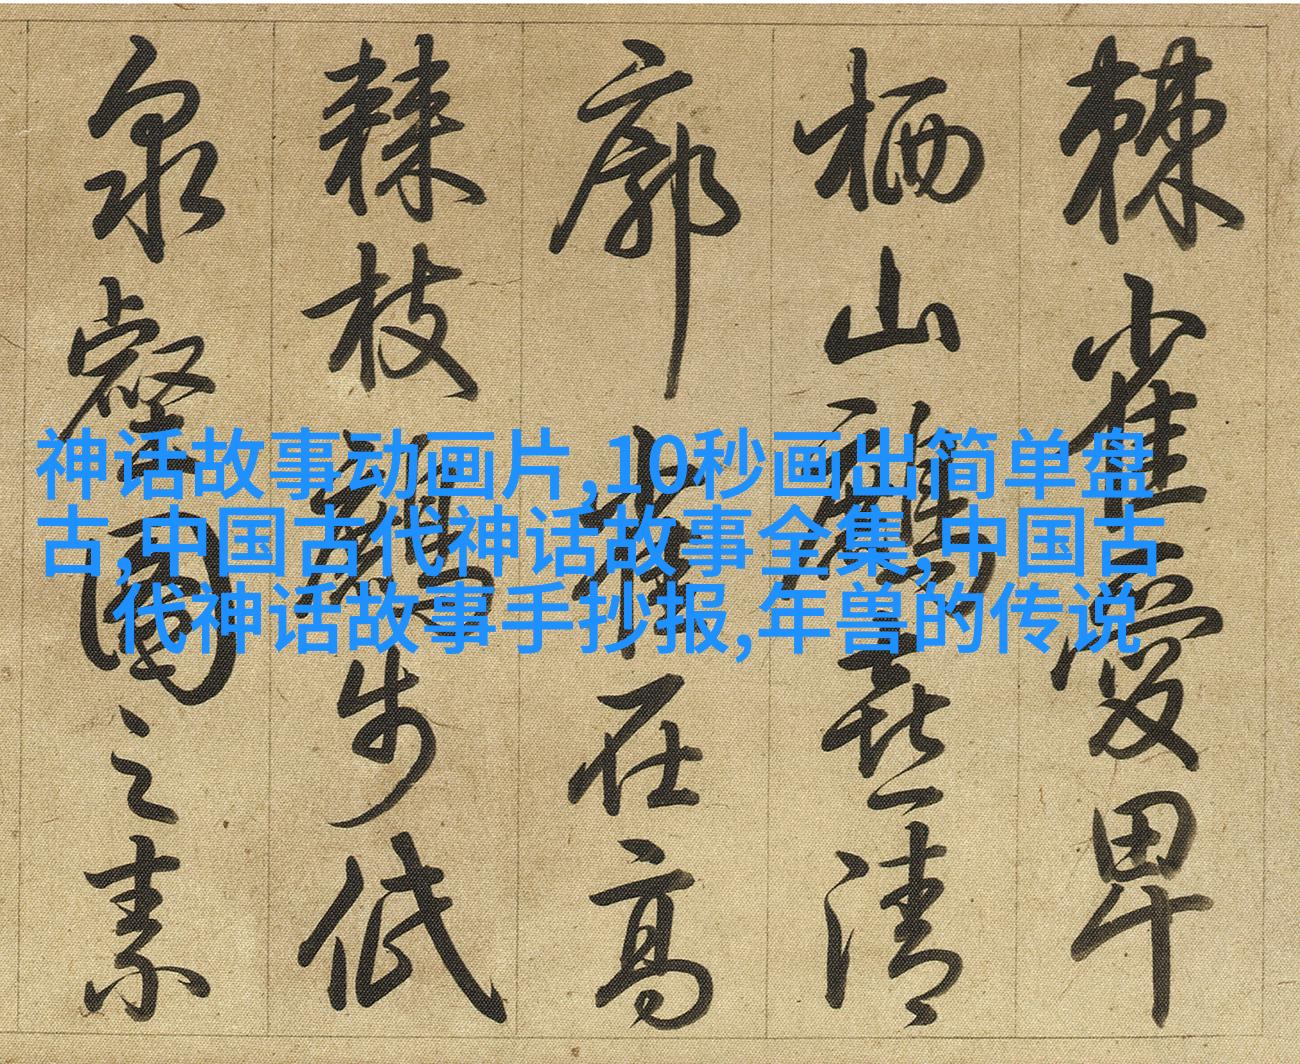 神话故事动画片,10秒画出简单盘
古,中国古代神话故事全集,中国古
代神话故事手抄报,年兽的传说
棘雀愛卑
栖山清
廓在高
棘枝步低
泉壑園之素